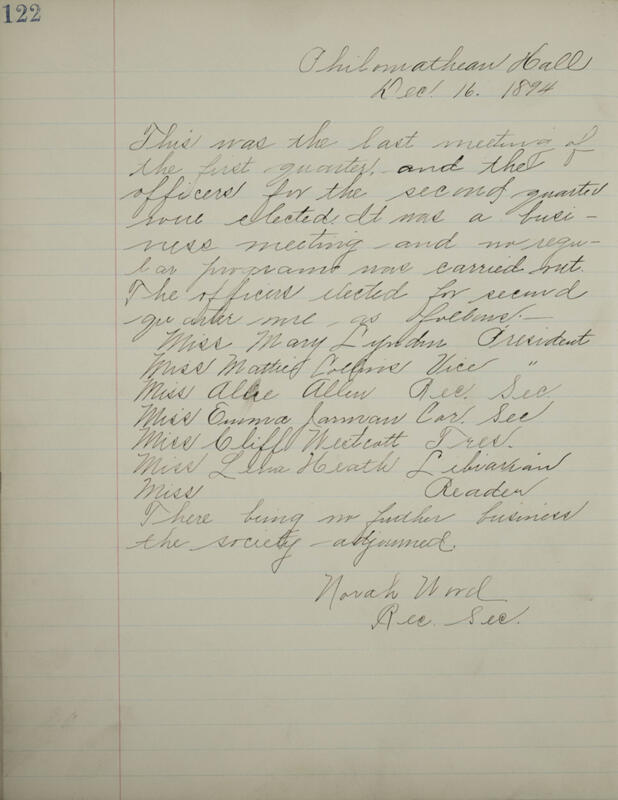 122
Philomathean Hall
Dec. 16. 1894
This was the last meeting of
the first quarter, and the
officers for the second quarter
were elected. It was a busi-
ness meeting and no regu-
lar program was carried out.
The officers elected for second
quarter are as follows:-
Miss Mary Lyndon President
Miss Mattie Collins Vice "
Miss Allie Allen Rec. Sec.
Miss Emma Jarman Cor. Sec
Miss Cliff Westcott Tres.
Miss Lena Heath Librarian
Miss Reader
There being no further business
the society adjourned.
Norah Ward
Rec. Sec.